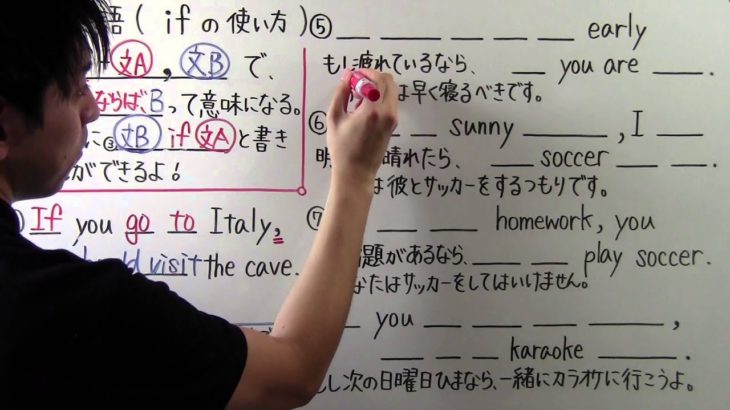 語 ( if の使い方 )
文A , 文B で、
ならば、B って意味になる。
に ③ 文B if 文A と書き
ができるよ!
If you go to Italy,
visit the cave.
⑤ __ __ __ __ __ early
もし疲れているなら、 __ you are __.
は早く寝るべきです。
⑥ __ __ sunny __ , I __
晴れたら、 __ soccer __ __.
は彼とサッカーをするつもりです。
⑦ __ __ homework, you
題があるなら、 __ __ play soccer.
なたはサッカーをしてはいけません。
__ you __ __ __ __ ,
__ __ __ karaoke __.
し次の日曜日ひまなら、一緒にカラオケに行こうよ。